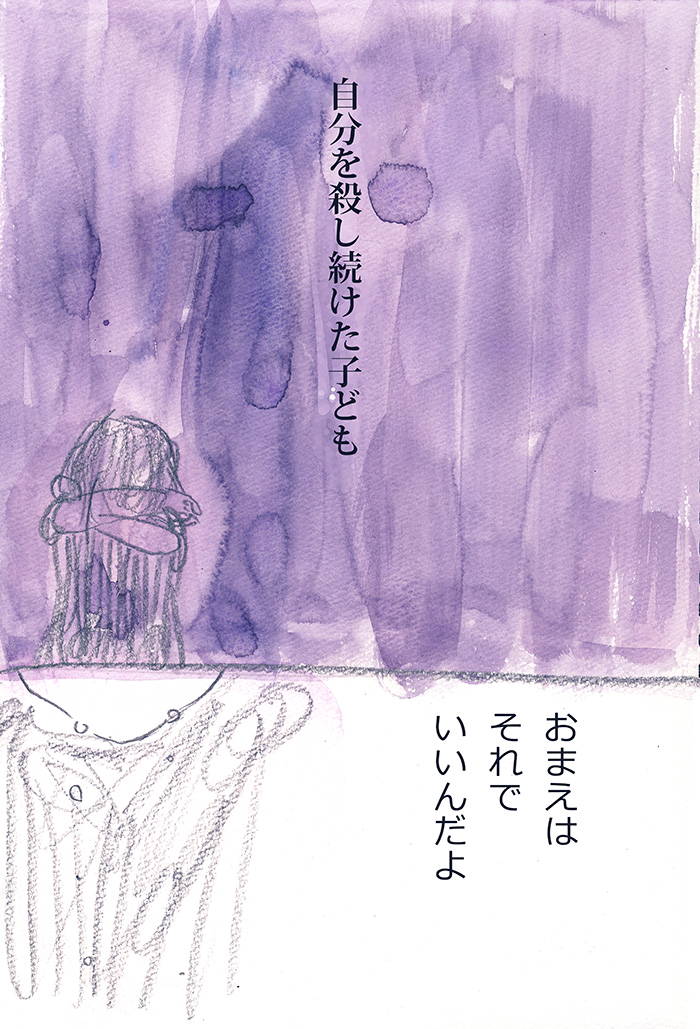 自分を殺し続けた子ども
おまえは
それで
いいんだよ